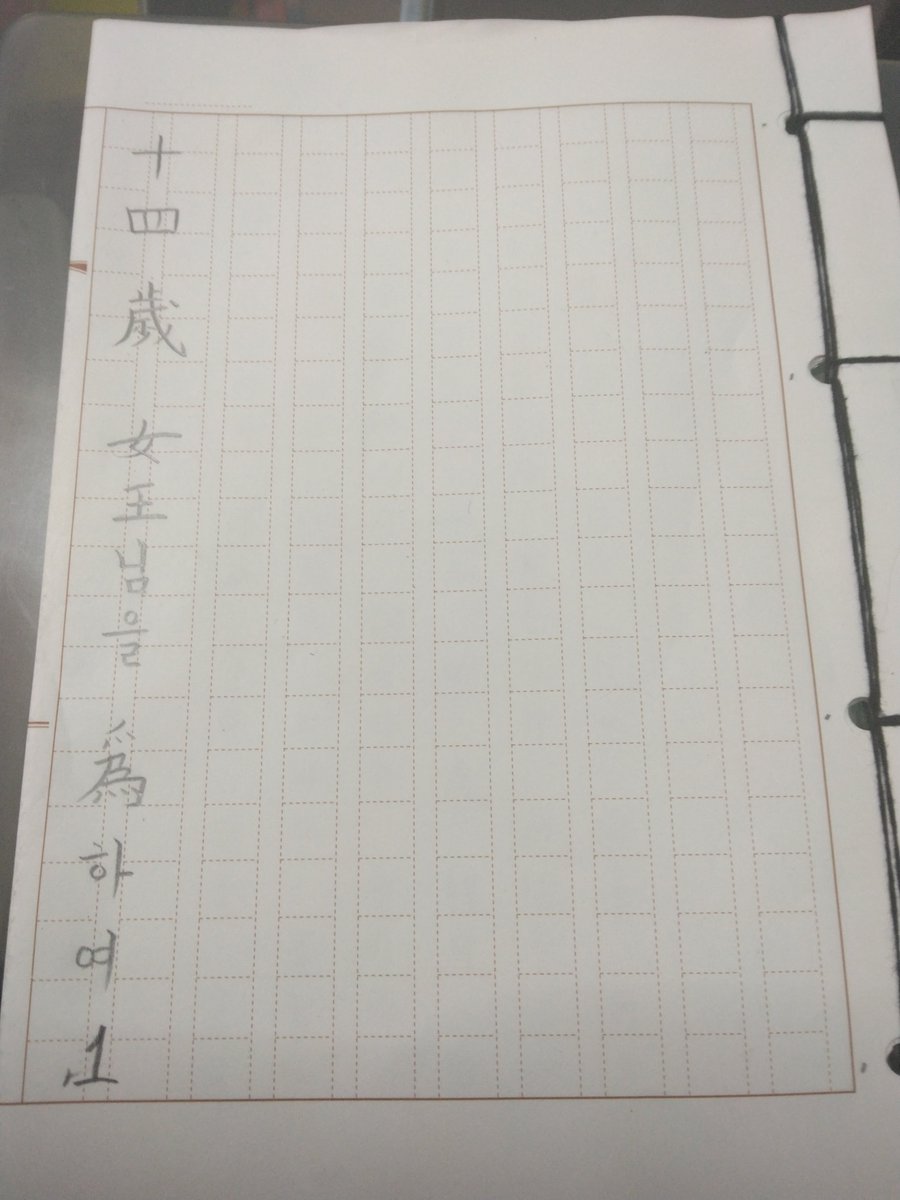 十四歲 女王님을 爲하여.1